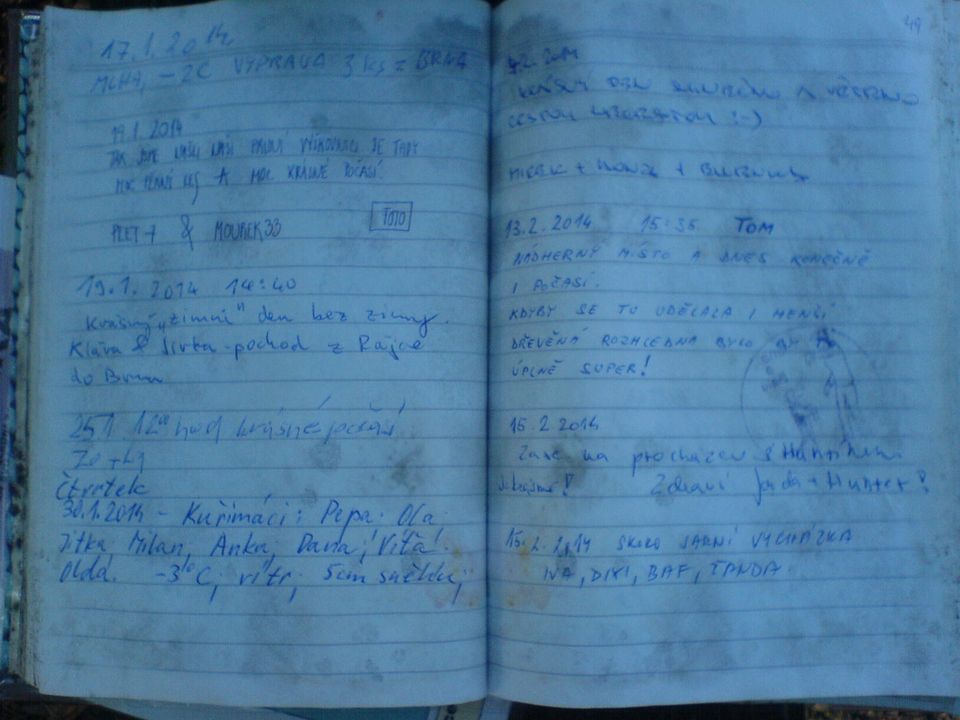 17.1.2014
MLHA, -2C VÝPRAVA 3 ks z BRNA
19.1.2014
TAK JSME NAŠLI NAŠI PRVNÍ SE TADY
MOC PĚKNÝ LES A MOC KRÁSNÉ POČASÍ!
PEET+ & MOUREK33 FOTO
19.1.2014 14:40
Krásný „zimní" den bez zimy.
Klára & Jirka - pochod z Rájce
do Brna
25.1. 12⁰⁰ hod krásné počasí
Čtvrtek
30.1.2014 - Kuřimáci: Pepa. Ola.
Jitka, Milan, Anka, Dana, Víťa!
Olda. -3°C, vítr, 5cm sněhu,
49
2014
KRÁSNÝ DEN SLUNEČNO A
CESTOU :-)
MIREK + HONZA +
13.2.2014 15:35 TOM
NÁDHERNÝ MÍSTO A DNES KONEČNĚ
I POČASÍ.
KDYBY SE TU UDĚLALA I MENŠÍ
DŘEVĚNÁ ROZHLEDNA BYLO BY TO
ÚPLNĚ SUPER!
15.2.2014
Zase na procházce s Hunterem
Děkujeme! Zdraví Jarda + Hunter!
15.2.2014 SKORO JARNÍ VYCHÁZKA
IVA, DIXI, BAF, TANDA.